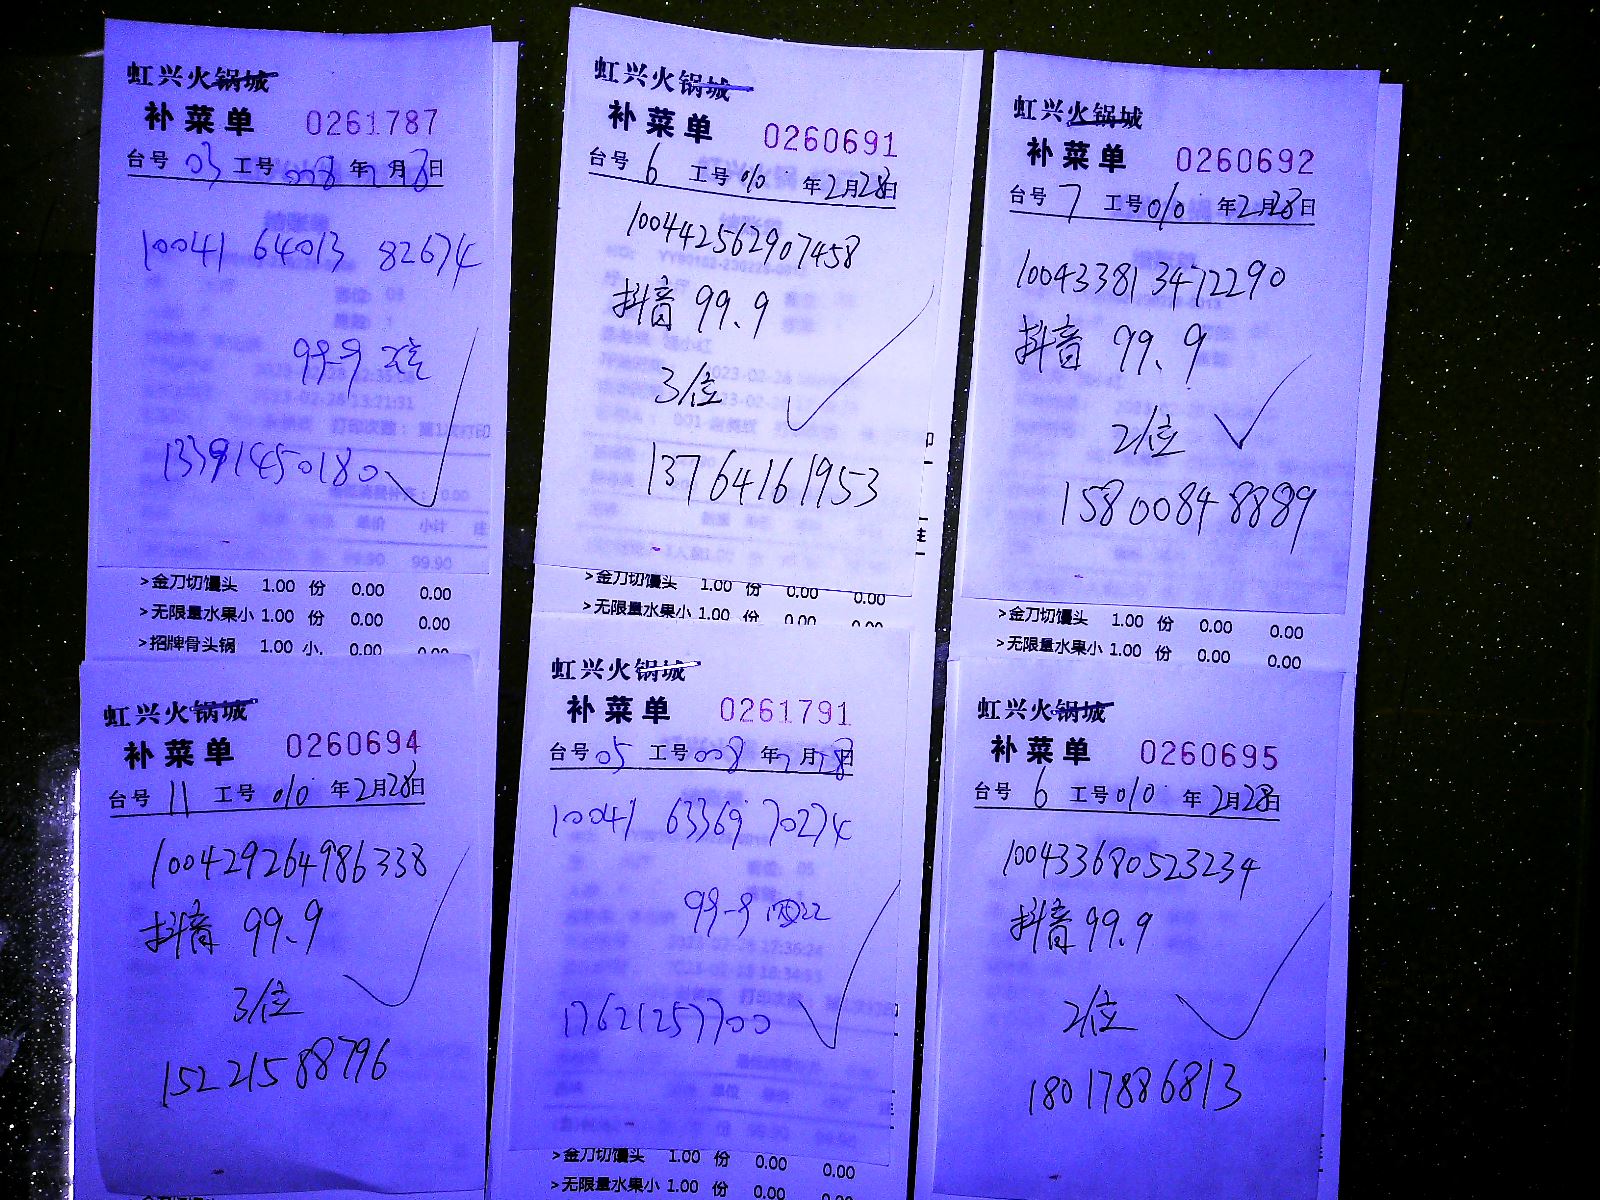 虹兴火锅城
补菜单 0261787
台号 03 工号 008 年 2 月 8日
10041 64013 82674
99-9 2位
13391450180
>金刀切馒头 1.00 份 0.00 0.00
>无限量水果小 1.00 份 0.00 0.00
>招牌骨头锅 1.00 小. 0.00 0.00
虹兴火锅城
补菜单 0260691
台号 6 工号 010 年2月28日
100442562907458
抖音 99.9
3位
13764161953
>金刀切馒头 1.00 份 0.00 0.00
>无限量水果小 1.00 份 0.00 0.00
虹兴火锅城
补菜单 0260692
台号 7 工号 010 年2月28日
100433813472290
抖音 99.9
2位
15800848889
>金刀切馒头 1.00 份 0.00 0.00
>无限量水果小 1.00 份 0.00 0.00
虹兴火锅城
补菜单 0260694
台号 11 工号 010 年2月28日
100429264986338
抖音 99.9
3位
15221588796
虹兴火锅城
补菜单 0261791
台号 05 工号 008 年 2 月 28日
10041 63369 70274
99-9
17621257700
>金刀切馒头 1.00 份 0.00 0.00
>无限量水果小 1.00 份 0.00 0.00
虹兴火锅城
补菜单 0260695
台号 6 工号 010 年 2月28日
100433680523234
抖音 99.9
2位
18017886813